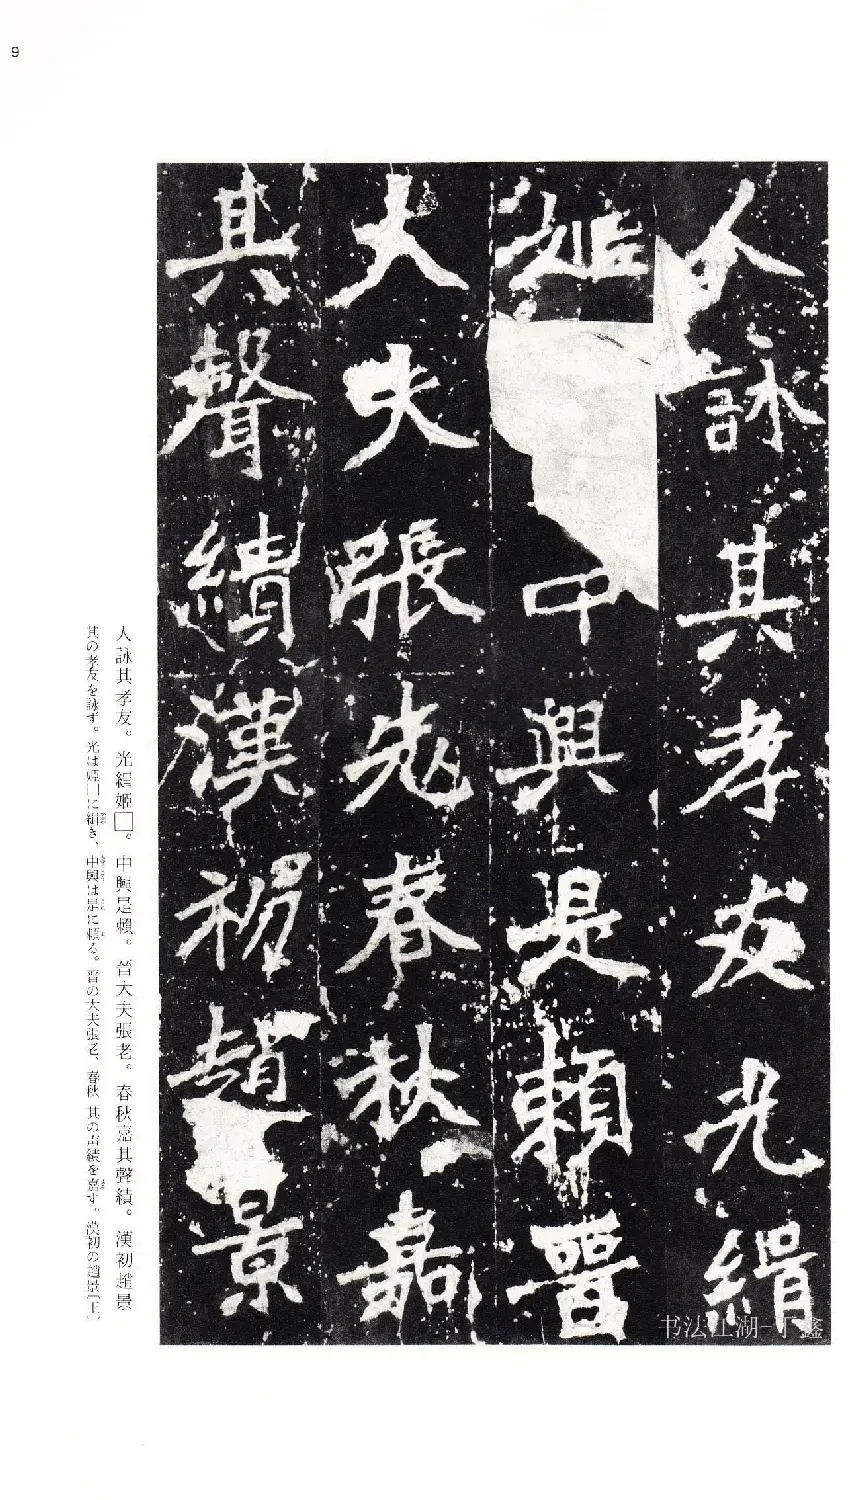 9
人詠其孝友光緝
姬中興是賴晉
大夫張老春秋嘉
其聲績漢初趙景
人詠其孝友。光緝姬□。中興是賴。晉大夫張老。春秋嘉其聲績。漢初趙景
其の孝友を詠ず。光は姬□に緝き、中興は是に賴る。晉の大夫張老、春秋 其の声績を嘉す。漢初の趙景〔王〕
书法江湖-丁鑫